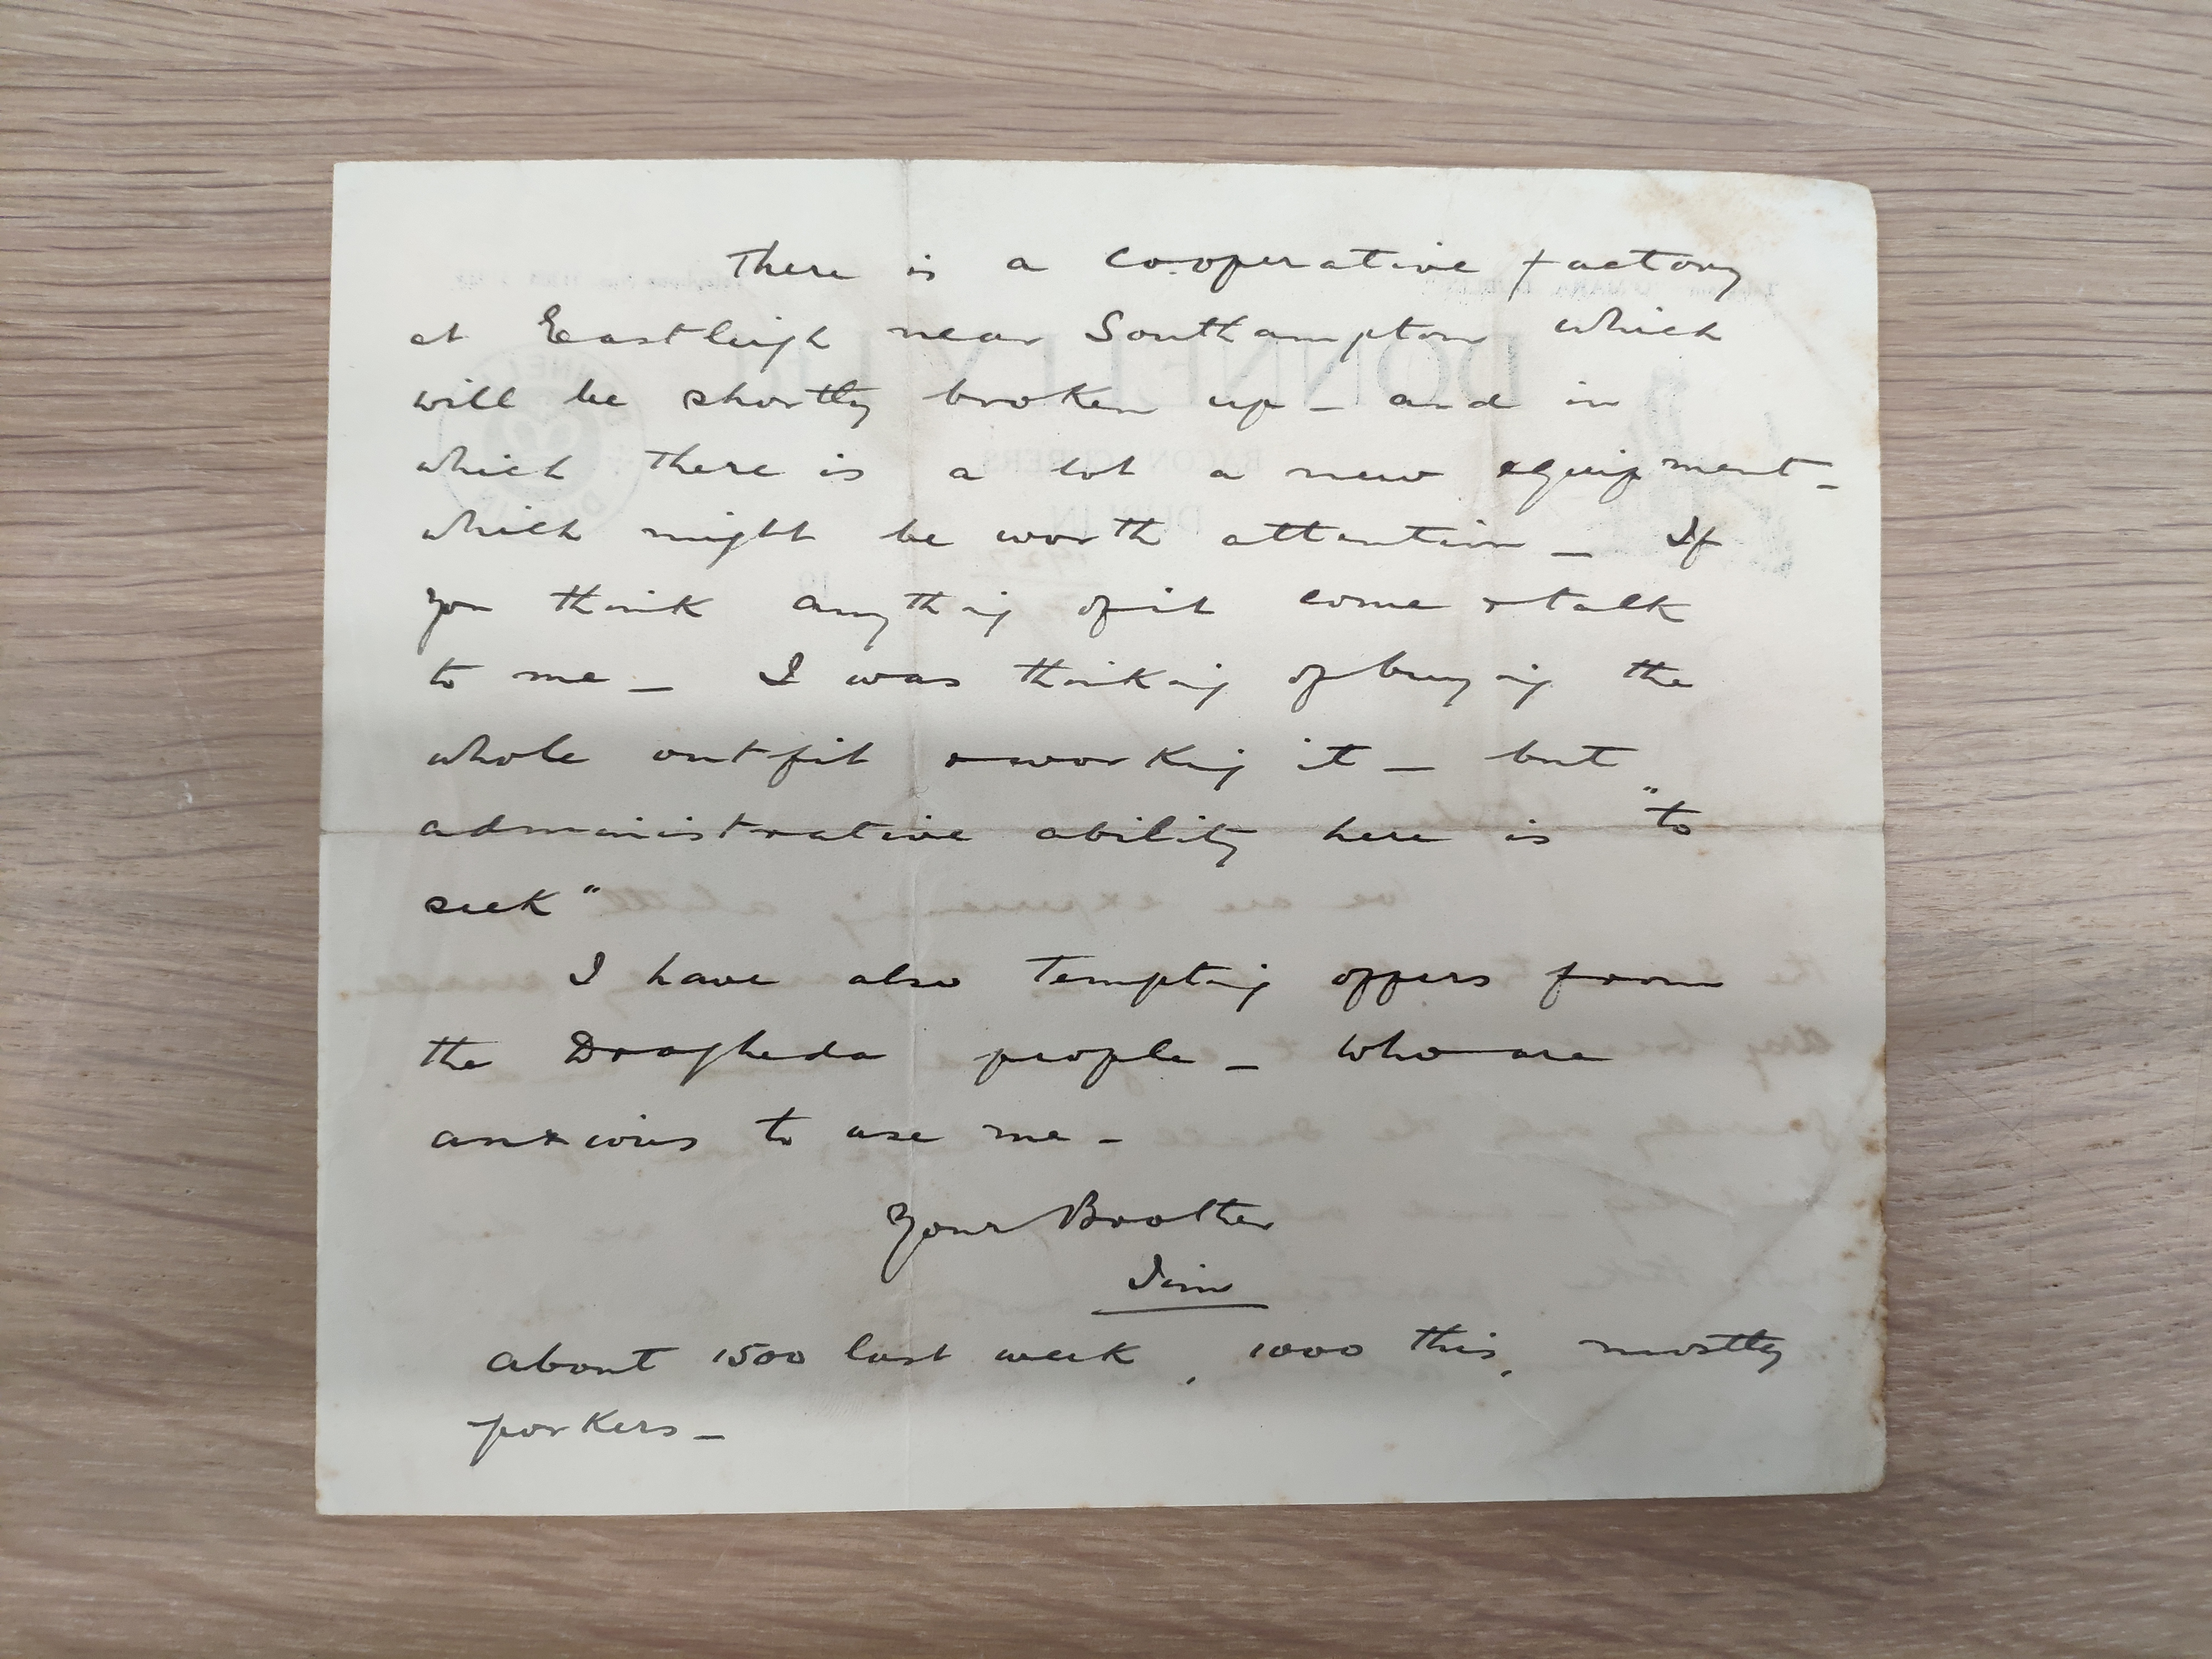 There is a cooperative factory
at Eastleigh near Southampton which
will be shortly broken up - and in
which there is a lot a new equipment -
which might be worth attention - If
you think anything of it come & talk
to me - I was thinking of buying the
whole outfit & working it - but
administrative ability here is "to
seek"
I have also tempting offers from
the Drogheda people - who are
anxious to use me -
Your Brother
Jim
about 1500 last week, 1000 this, mostly
porkers -